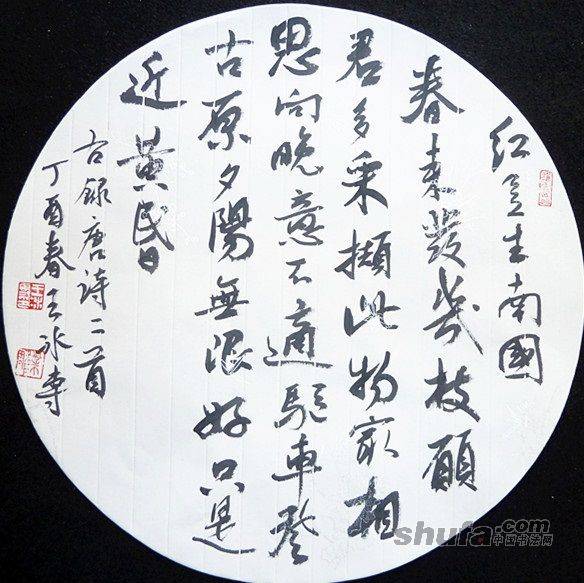 红豆生南國
春来發幾枝願
君多采擷此物最相
思向晚意不適驅車登
古原夕陽無限好只是
近黄昏
右録唐詩二首
丁酉春王冰
shufa.com
中国书法网